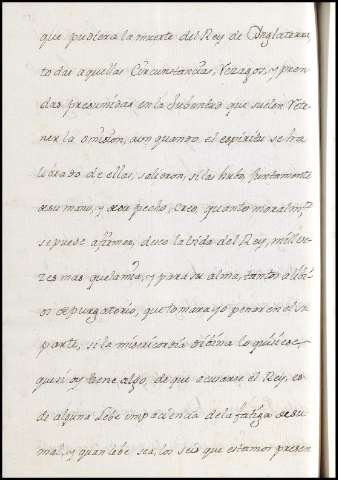 que pudiera la muerte del Rey de Inglaterra,
todas aquellas Circunstancias, Rezagos, y pren
das presumidas en la Jubentud que suelen Rete
ner la omision, aun quando, el espiritu se ha
librado de ellas, salieron, si las hubo, Juntamente
de su mano, y de su pecho, Creo, quanto moralm.te
se puede afirmar, deseo la bida del Rey, mill ve
zes mas que la mia, y para su alma, tantos alibi
os de purgatorio, que tomara yo penar en el su
parte, si la misericordia dibina lo quisiese
y si oy tiene algo, de que acusarse el Rey, es
de alguna lebe impaciencia de la fatiga de su
mal, y quan lebe sea, los seis que estamos presen